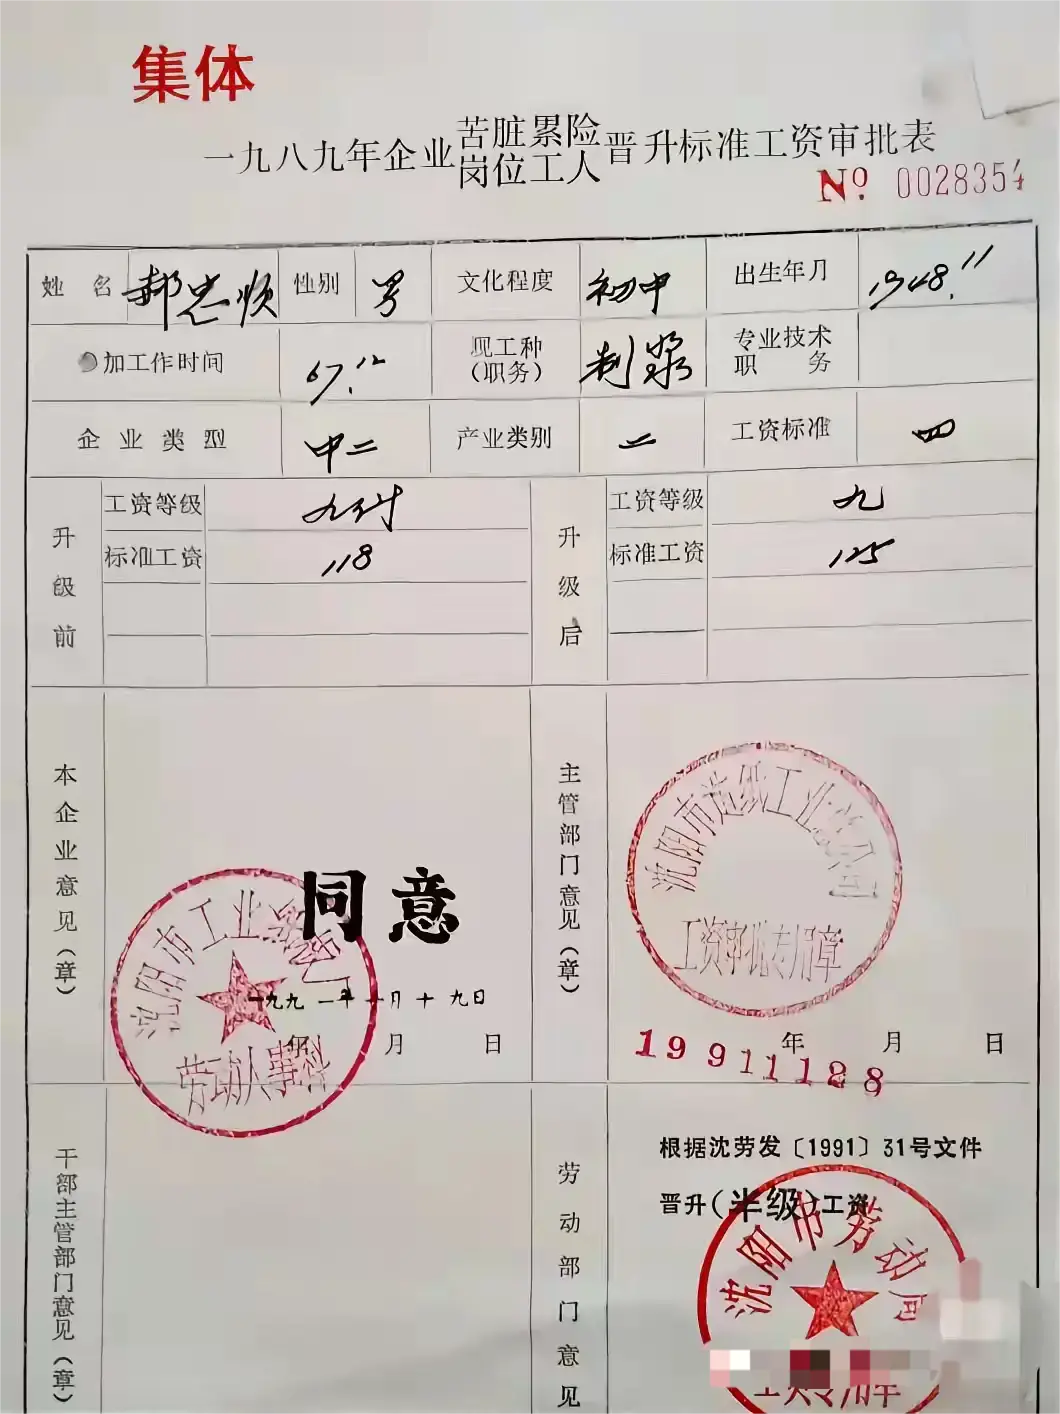 集体
一九八九年企业苦脏累险岗位工人晋升标准工资审批表
No 0028354
姓名 郝忠顺 性别 男 文化程度 初中 出生年月 1948.11
加工作时间 67.12 现工种（职务） 制浆 专业技术职务
企业类型 中二 产业类别 二 工资标准 四
升级前 工资等级 九付 升级后 工资等级 九
标准工资 118 标准工资 125
本企业意见（章）
同意
沈阳市工业
劳动人事科
一九九一年一月十九日
年 月 日
主管部门意见（章）
沈阳市造纸工业总公司
工资审批专用章
年 月 日
19911128
干部主管部门意见（章）
劳动部门意见
根据沈劳发〔1991〕31号文件
晋升（半级）工资
沈阳市劳动局